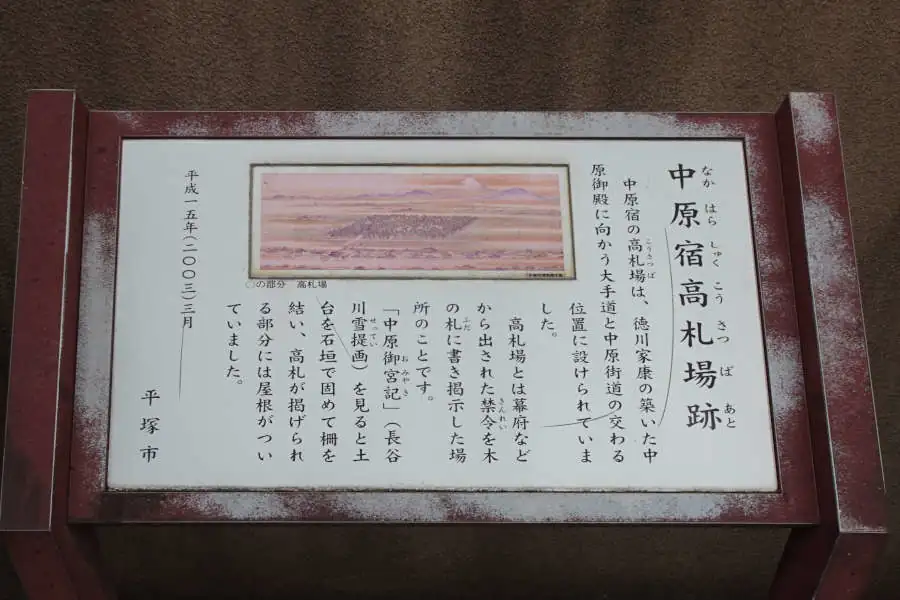 中原宿高札場跡
なか はら しゅく こう さつ ば あと
中原宿の高札場は、徳川家康の築いた中
こうさつば
原御殿に向かう大手道と中原街道の交わる
位置に設けられていま
した。
高札場とは幕府など
から出された禁令を木
きんれい
の札に書き掲示した場
ふだ
所のことです。
「中原御宮記」（長谷
おみやき
川雪提画）を見ると土
せってい
台を石垣で固めて柵を
結い、高札が掲げられ
る部分には屋根がつい
ていました。
○の部分 高札場
平成一五年（二〇〇三）三月
平塚市